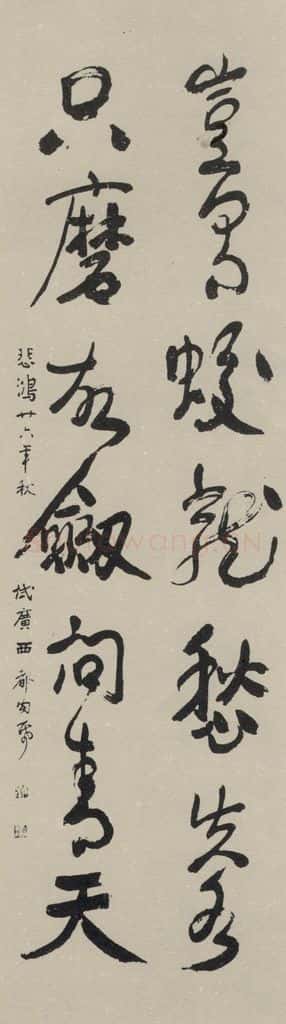 豈蛟龍愁失水
只磨劍問青天
悲鴻廿六年秋 試廣西都